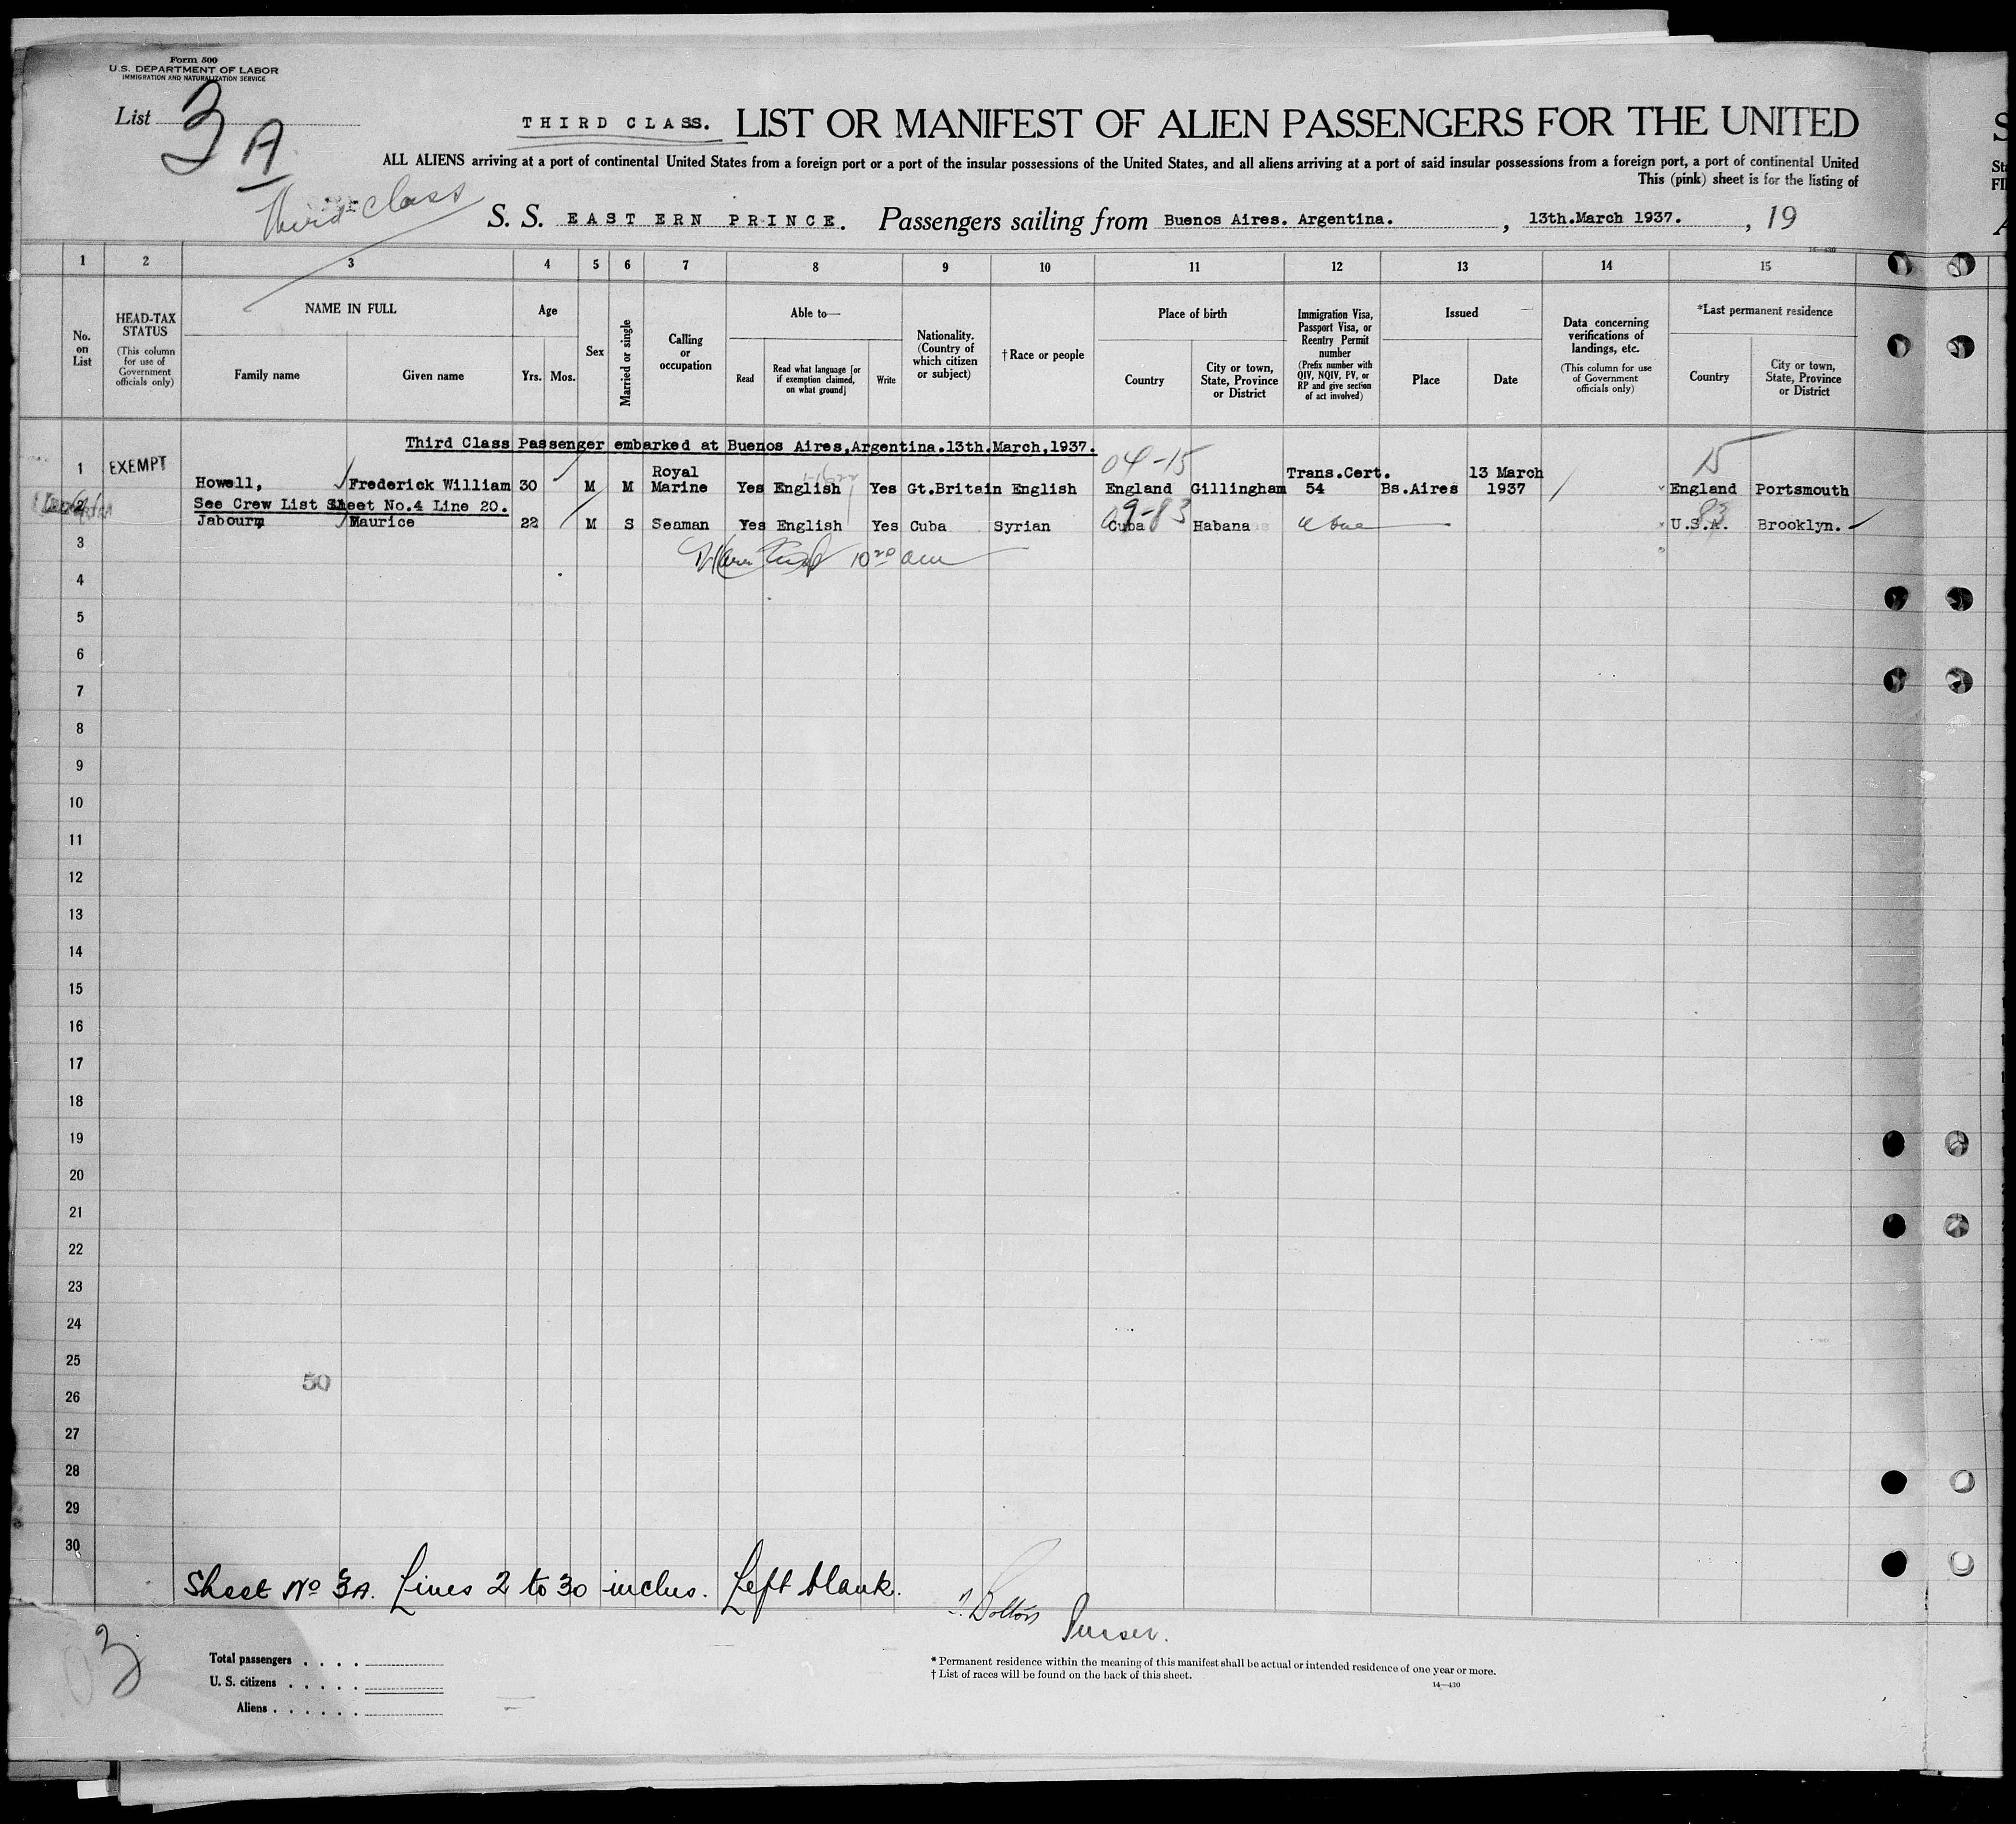 Form 500
U.S. DEPARTMENT OF LABOR
IMMIGRATION AND NATURALIZATION SERVICE
List 3 A
THIRD CLASS. LIST OR MANIFEST OF ALIEN PASSENGERS FOR THE UNITED
S
ALL ALIENS arriving at a port of continental United States from a foreign port or a port of the insular possessions of the United States, and all aliens arriving at a port of said insular possessions from a foreign port, a port of continental United
This (pink) sheet is for the listing of
Third class
S. S. EASTERN PRINCE. Passengers sailing from Buenos Aires. Argentina. , 13th.March 1937. , 19
14—430
1 2 3 4 5 6 7 8 9 10 11 12 13 14 15
No. on List
HEAD-TAX STATUS (This column for use of Government officials only)
NAME IN FULL
Family name
Given name
Age
Yrs. Mos.
Sex
Married or single
Calling or occupation
Able to—
Read
Read what language [or if exemption claimed, on what ground]
Write
Nationality. (Country of which citizen or subject)
† Race or people
Place of birth
Country
City or town, State, Province or District
Immigration Visa, Passport Visa, or Reentry Permit number (Prefix number with QIV, NQIV, PV, or RP and give section of act involved)
Issued
Place
Date
Data concerning verifications of landings, etc. (This column for use of Government officials only)
*Last permanent residence
Country
City or town, State, Province or District
Third Class Passenger embarked at Buenos Aires,Argentina.13th.March,1937.
04-15
15
1 EXEMPT Howell, Frederick William 30 M M Royal Marine Yes English Yes Gt.Britain English England Gillingham Trans.Cert. 54 Bs.Aires 13 March 1937 England Portsmouth
See Crew List Sheet No.4 Line 20.
09-83
83
2 Jabourm, Maurice 22 M S Seaman Yes English Yes Cuba Syrian Cuba Habana U.S.A. Brooklyn.
3
10 20 am
4
5
6
7
8
9
10
11
12
13
14
15
16
17
18
19
20
21
22
23
24
25
50
26
27
28
29
30
Sheet No 3A. Lines 2 to 30 inclus. Left blank.
Bolton
Purser.
3
Total passengers . . . .
U. S. citizens . . . . .
Aliens . . . . . .
* Permanent residence within the meaning of this manifest shall be actual or intended residence of one year or more.
† List of races will be found on the back of this sheet.
14—430